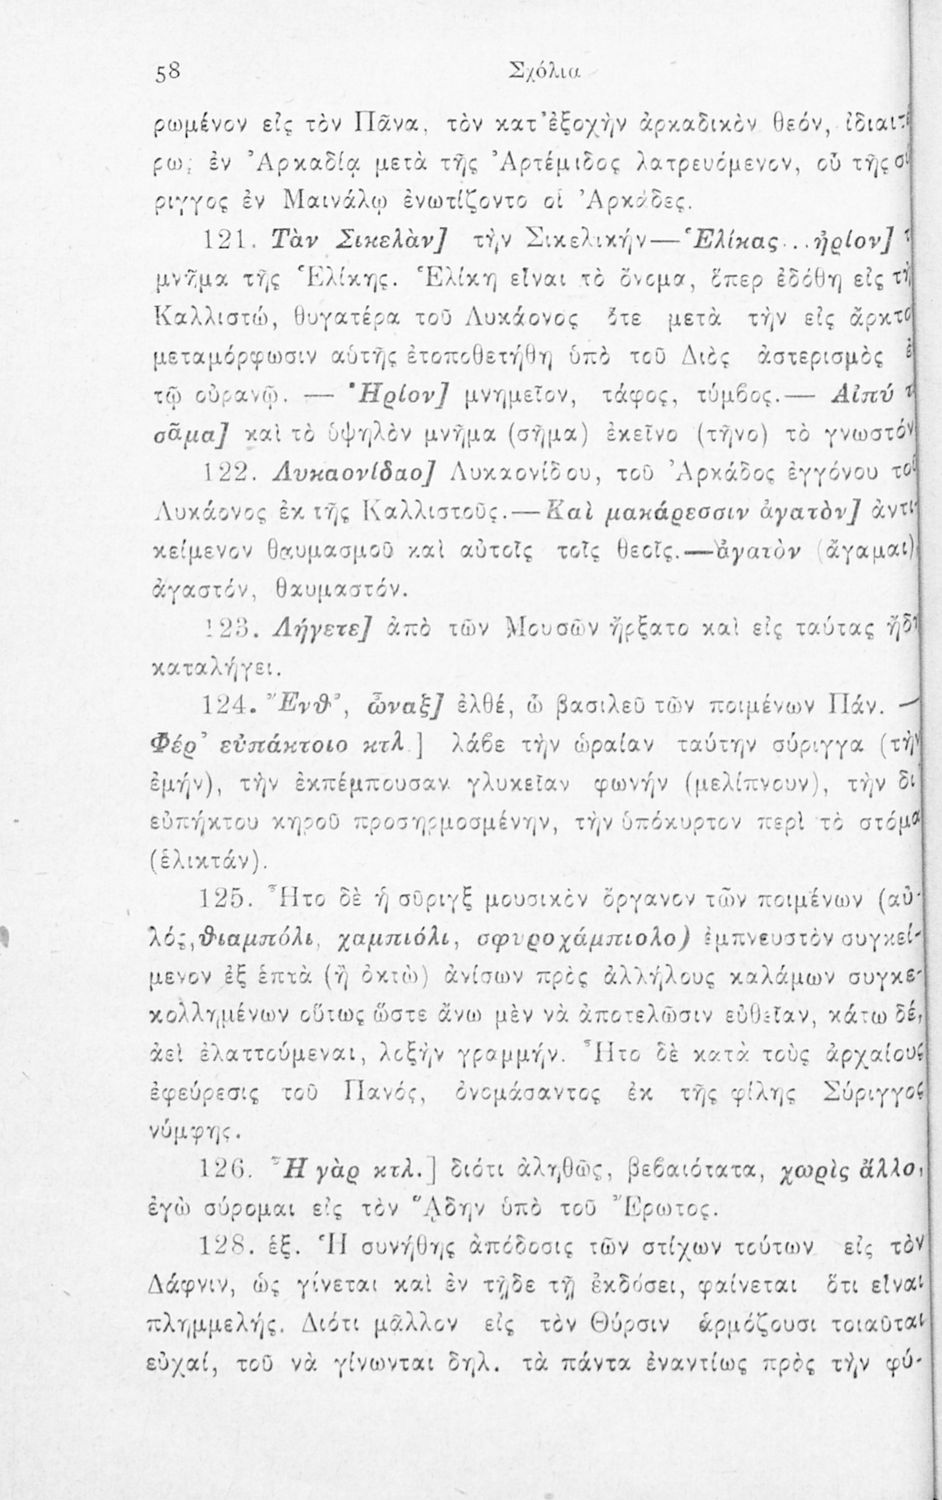 58 Σχόλια
ρωμένον εἰς τὸν Πᾶνα, τὸν κατ' ἐξοχὴν ἀρκαδικὸν θεόν,
ἐν Ἀρκαδίᾳ μετὰ τῆς Ἀρτέμιδος λατρευόμενον, οὗ τῆς
ριγγος ἐν Μαινάλῳ ἐνωτίζοντο οἱ Ἀρκάδες.
121. Τὰν Σικελὰν] τὴν Σικελικήν—Ἑλίκας...ἠρίον]
μνῆμα τῆς Ἑλίκης. Ἑλίκη εἶναι τὸ ὄνομα, ὅπερ ἐδόθη εἰς
Καλλιστώ, θυγατέρα τοῦ Λυκάονος ὅτε μετὰ τὴν εἰς ἄρκτο
μεταμόρφωσιν αὐτῆς ἐτοποθετήθη ὑπὸ τοῦ Διὸς ἀστερισμὸς
τῷ οὐρανῷ. — Ἠρίον] μνημεῖον, τάφος, τύμβος.— Αἰπύ
σᾶμα] καὶ τὸ ὑψηλὸν μνῆμα (σῆμα) ἐκεῖνο (τῆνο) τὸ γνωστόν
122. Λυκαονίδαο] Λυκαονίδου, τοῦ Ἀρκάδος ἐγγόνου τοῦ
Λυκάονος ἐκ τῆς Καλλιστοῦς.—Καὶ μακάρεσσιν ἀγατὸν] ἀντι-
κείμενον θαυμασμοῦ καὶ αὐτοῖς τοῖς θεοῖς.—ἀγατὸν (ἄγαμαι)
ἀγαστόν, θαυμαστόν.
123. Λήγετε] ἀπὸ τῶν Μουσῶν ἤρξατο καὶ εἰς ταύτας ἤδη
καταλήγει.
124. Ἔνθ', ὦναξ] ἐλθέ, ὦ βασιλεῦ τῶν ποιμένων Πάν. —
Φέρ' εὐπάκτοιο κτλ.] λάβε τὴν ὡραίαν ταύτην σύριγγα (τὴν
ἐμήν), τὴν ἐκπέμπουσαν γλυκεῖαν φωνήν (μελίπνουν), τὴν δι'
εὐπήκτου κηροῦ προσηρμοσμένην, τὴν ὑπόκυρτον περὶ τὸ στόμα
(ἑλικτάν).
125. Ἦτο δὲ ἡ σῦριγξ μουσικὸν ὄργανον τῶν ποιμένων (αὐ-
λός, θιαμπόλι, χαμπιόλι, σφυροχάμπιολο) ἐμπνευστὸν συγκεί-
μενον ἐξ ἑπτὰ (ἢ ὀκτὼ) ἀνίσων πρὸς ἀλλήλους καλάμων συγκε-
κολλημένων οὕτως ὥστε ἄνω μὲν νὰ ἀποτελῶσιν εὐθεῖαν, κάτω δέ,
ἀεὶ ἐλαττούμεναι, λοξὴν γραμμήν. Ἦτο δὲ κατὰ τοὺς ἀρχαίους
ἐφεύρεσις τοῦ Πανός, ὀνομάσαντος ἐκ τῆς φίλης Σύριγγος
νύμφης.
126. Ἦ γὰρ κτλ.] διότι ἀληθῶς, βεβαιότατα, χωρὶς ἄλλο,
ἐγὼ σύρομαι εἰς τὸν Ἅδην ὑπὸ τοῦ Ἔρωτος.
128. ἑξ. Ἡ συνήθης ἀπόδοσις τῶν στίχων τούτων εἰς τὸν
Δάφνιν, ὡς γίνεται καὶ ἐν τῇδε τῇ ἐκδόσει, φαίνεται ὅτι εἶναι
πλημμελής. Διότι μᾶλλον εἰς τὸν Θύρσιν ἁρμόζουσι τοιαῦται
εὐχαί, τοῦ νὰ γίνωνται δηλ. τὰ πάντα ἐναντίως πρὸς τὴν φύ-